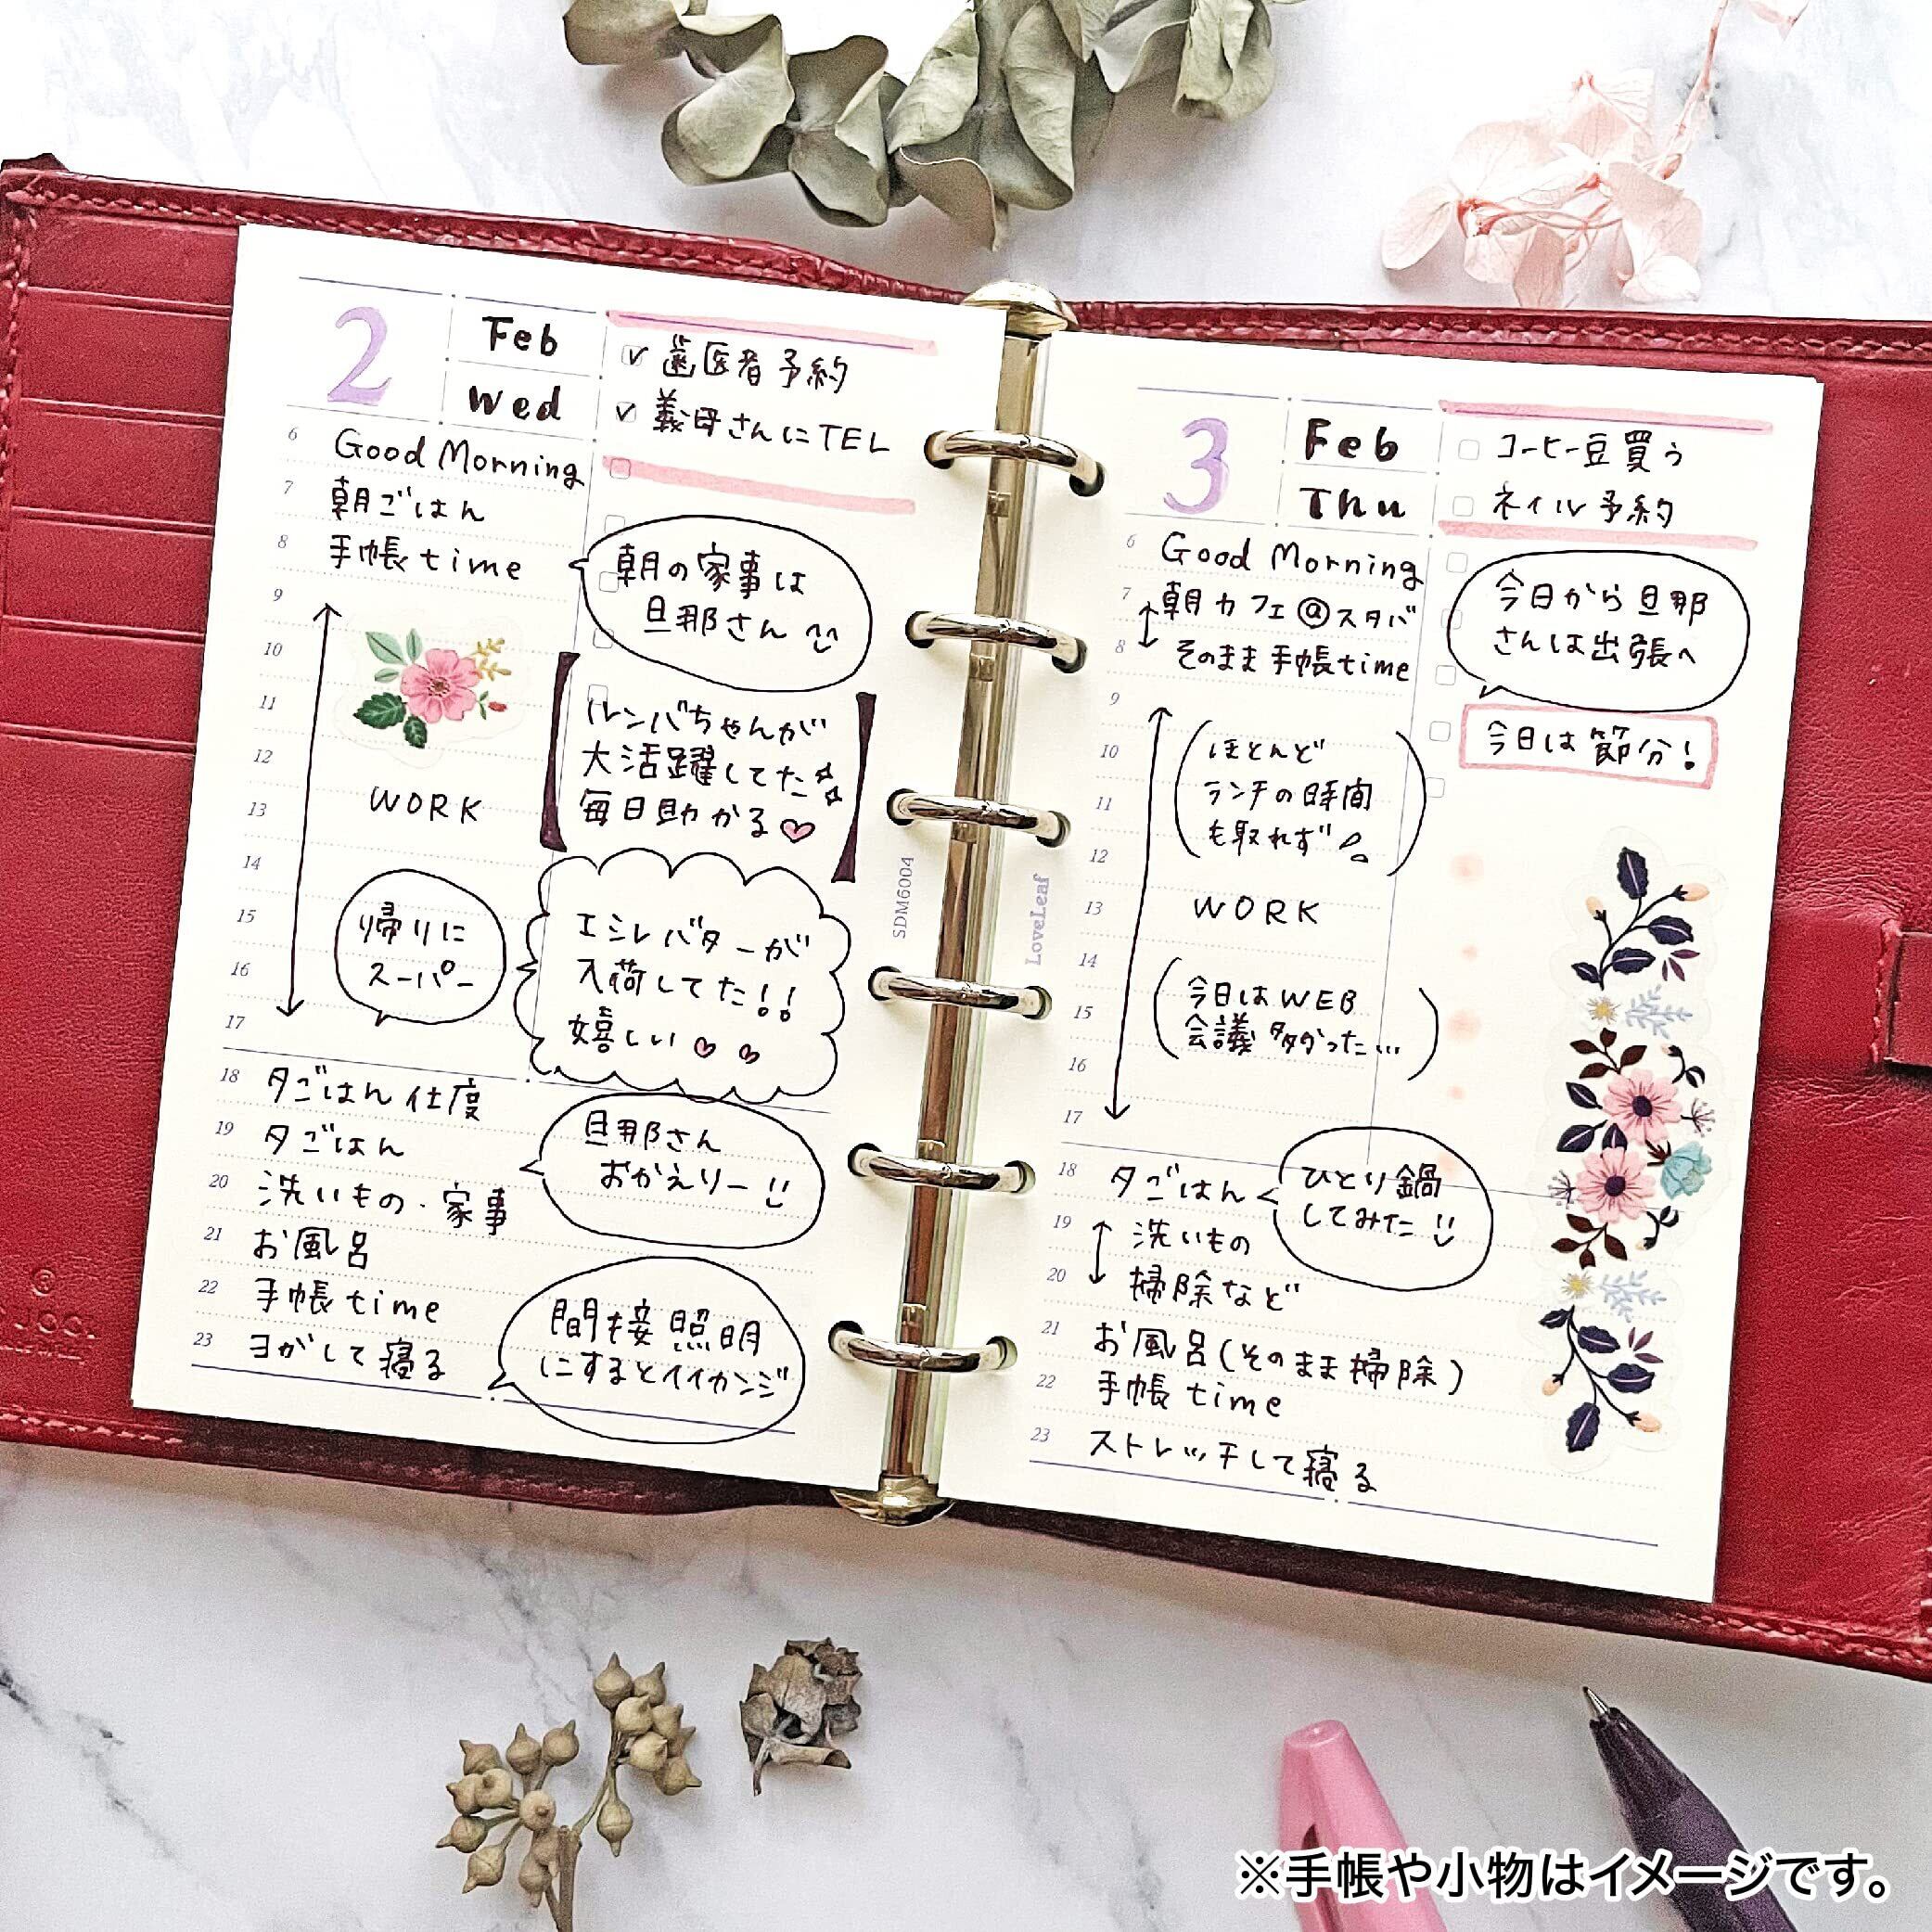 2
Feb
Wed
歯医者予約
義母さんにTEL
6 Good Morning
7 朝ごはん
8 手帳time
朝の家事は
旦那さん
9
10
11
12
13
14
15
16
17
ルンバちゃんが
大活躍してた
毎日助かる
WORK
帰りに
スーパー
エシレバターが
入荷してた!!
嬉しい
18 夕ごはん仕度
19 夕ごはん
20 洗いもの・家事
21 お風呂
22 手帳time
23 ヨガして寝る
旦那さん
おかえりー
間接照明
にするとイイカンジ
SDM6004
LoveLeaf
3
Feb
Thu
コーヒー豆買う
ネイル予約
6 Good Morning
7 朝カフェ@スタバ
8 そのまま手帳time
今日から旦那
さんは出張へ
今日は節分!
9
10
11
12
13
14
15
16
17
ほとんど
ランチの時間
も取れず
WORK
今日はWEB
会議多かった…
18 夕ごはん
ひとり鍋
してみた
19 洗いもの
20 掃除など
21 お風呂(そのまま掃除)
22 手帳time
23 ストレッチして寝る
※手帳や小物はイメージです。